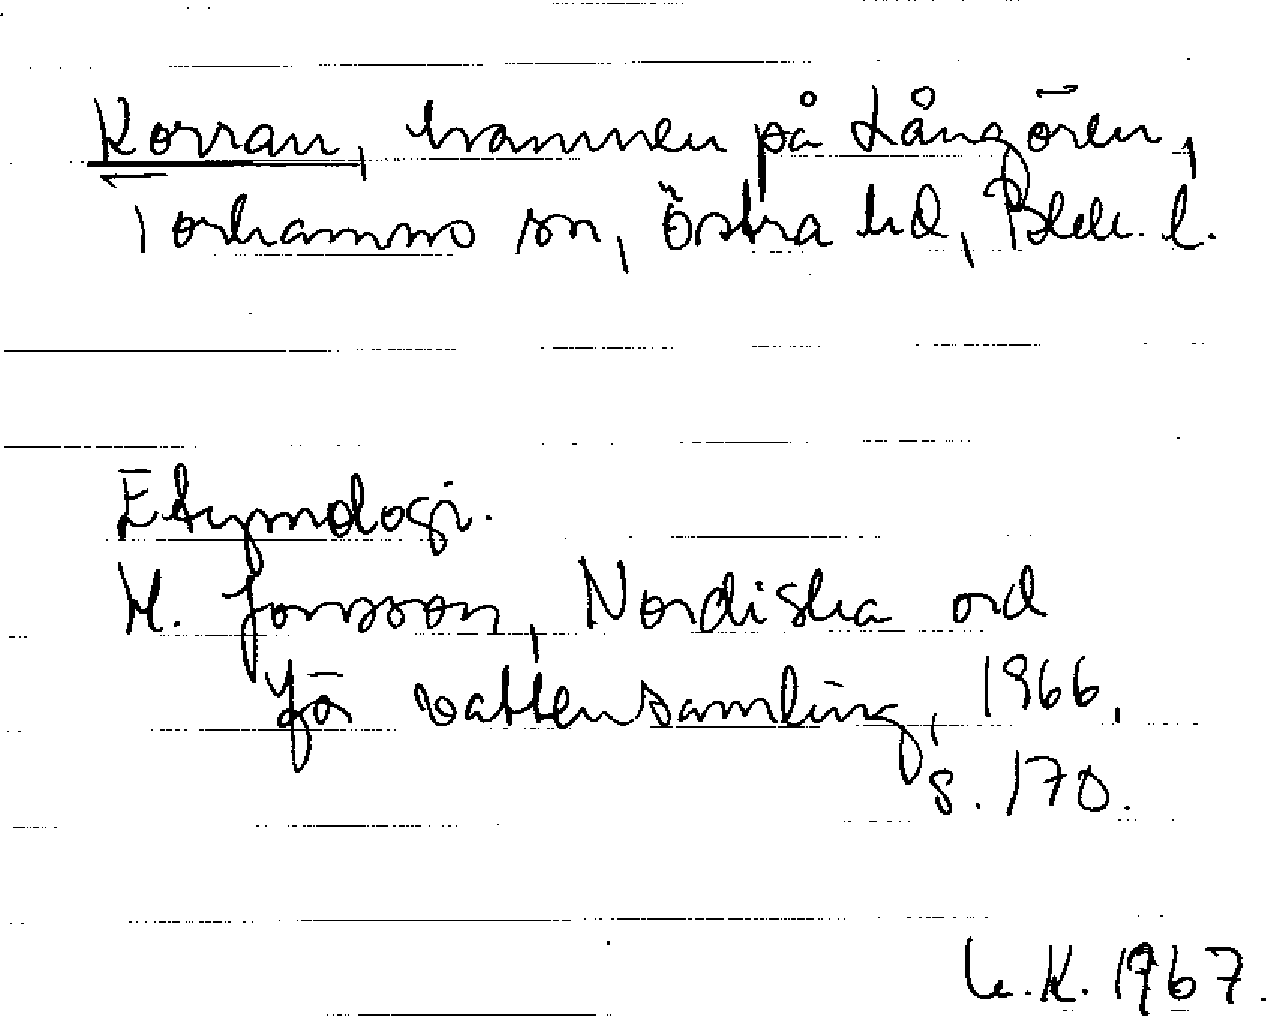 Korran, hamnen på Långören,
Torhamns sn, Östra hd, Blek. l.
Etymologi.
H. Jonsson, Nordiska ord
för vattensamling, 1966,
s. 170.
K. 1967.